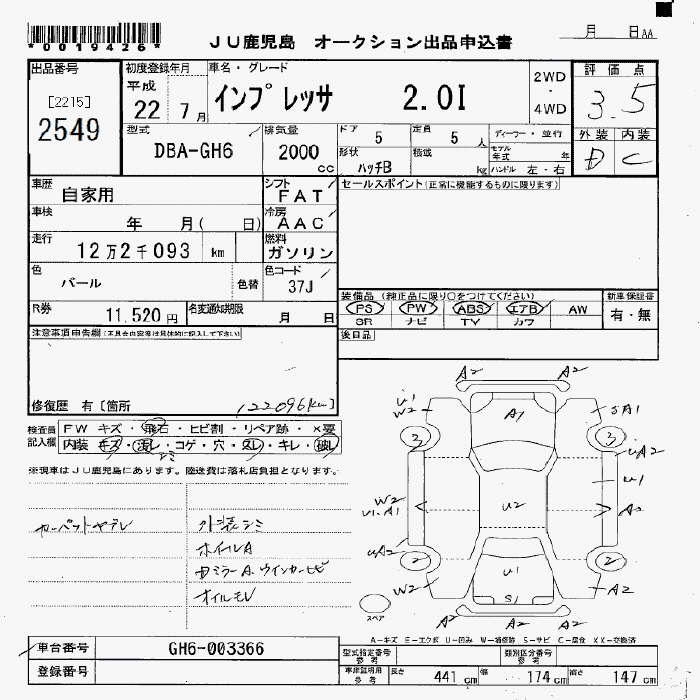 *0019426*
JU鹿児島 オークション出品申込書
月 日 AA
出品番号
[2215]
2549
初度登録年月
平成
22 7 月
車名・グレード
インプレッサ 2.0I
2WD
・
4WD
評価点
3.5
外装 内装
D C
型式
DBA-GH6
排気量
2000
cc
ドア 5
定員 5 人
形状
ハッチB
積載 kg
ディーラー・並行
モデル年式 年
ハンドル 左・右
車歴
自家用
シフト
FAT
車検
年 月( 日)
冷房
AAC
走行
12万2千093 km
燃料
ガソリン
色
パール
色替
色コード
37J
R券
11,520円
名変通知期限
月 日
セールスポイント(正常に機能するものに限ります)
装備品(純正品に限り○をつけてください)
PS PW ABS エアB AW
SR ナビ TV カワ
新車保証書
有・無
後日品
注意事項申告欄(不具合内容等は具体的に記入して下さい)
修復歴 有〔箇所
122096km〕
検査員
記入欄
FW キズ・飛石・ヒビ割・リペア跡・×要
内装 キズ・汚レ・コゲ・穴・スレ・キレ・破レ
シミ
※現車はJU鹿児島にあります。陸送費は落札店負担となります。
カーペットヤブレ
外装シミ
ホイルA
Dミラー A. ウインカーヒビ
オイルモレ
A2 A2
U1
W2
A1
SA1
3 3
UA2
U1
W2
U1・A1
U2
A2
UA2
2 2
W2
U1
A2
S1
A2 A2 A2
スペア
A-キズ E-エクボ U-凹み W-補修跡 S-サビ C-腐食 XX-交換済
車台番号
GH6-003366
登録番号
型式指定番号
参考
類別区分番号
参考
車庫証明用
参考
長さ 441 cm 幅 174 cm 高さ 147 cm